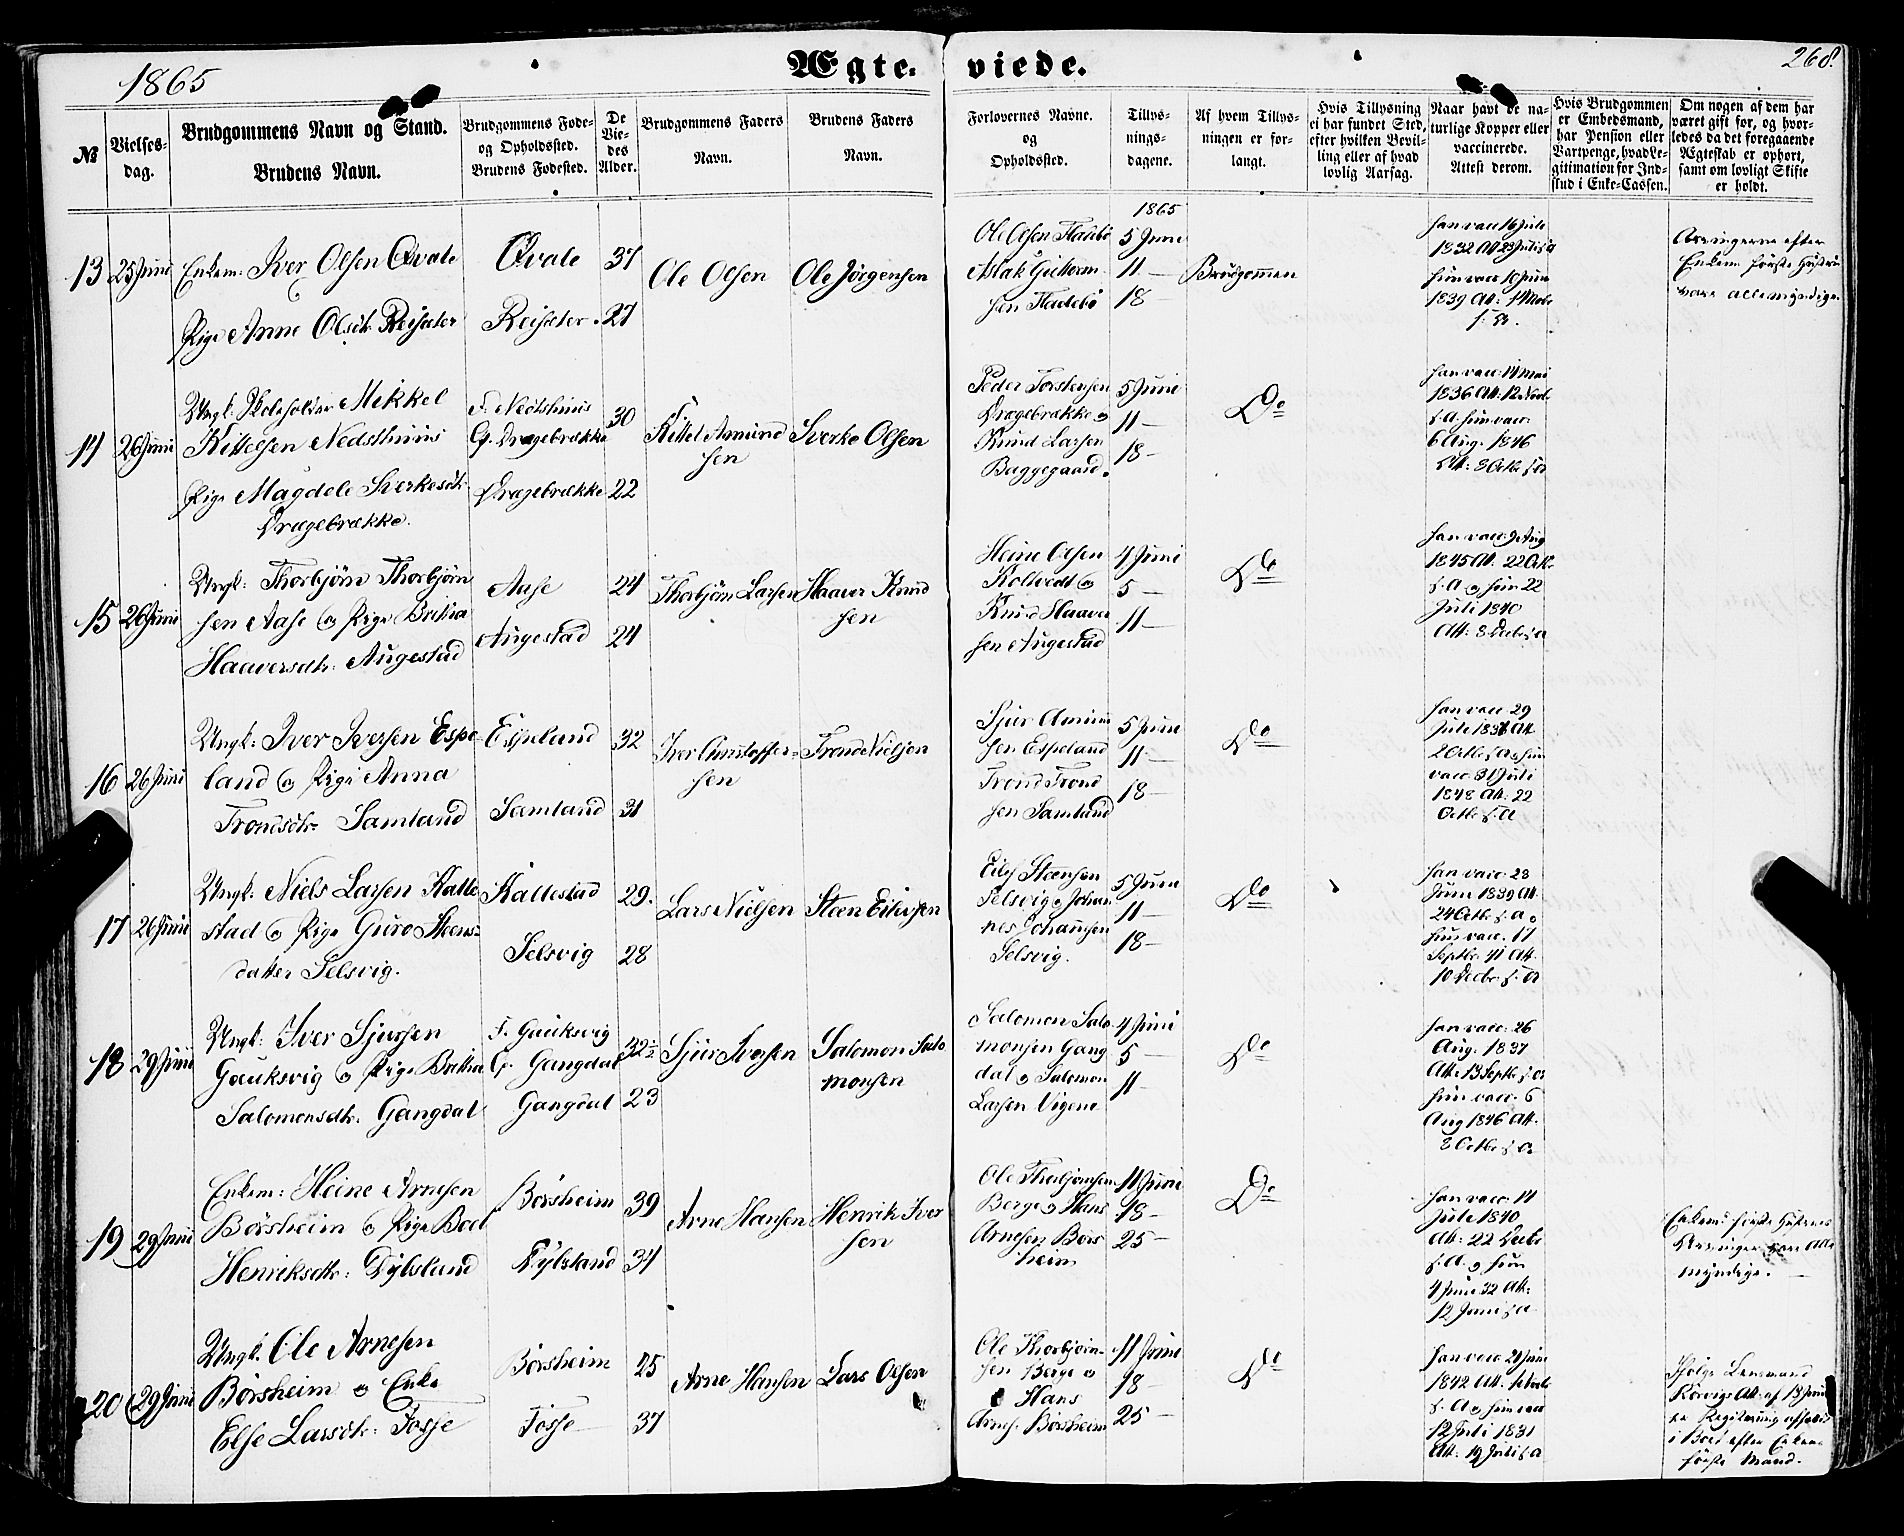 1865
Ægte.
viede.
268.
№
Vielses-
dag.
Brudgommens Navn og Stand.
Brudens Navn.
Brudgommens Føde-
og Opholdssted.
Brudens Fødested.
De
Vie-
des
Alder.
Brudgommens Faders
Navn.
Brudens Faders
Navn.
Forlovernes Navne.
og
Opholdssted.
Tillys-
nings-
dagene.
Af hvem Tillys-
ningen er for-
langt.
Hvis Tillysning
ei har fundet Sted,
efter hvilken Bevil-
ling eller af hvad
lovlig Aarsag.
Naar havt de na-
turlige Kopper eller
vaccinerede.
Attest derom.
Hvis Brudgommen
er Embedsmand,
har Pension eller
Vartpenge, hvad Le-
gitimation for Ind-
skud i Enke-Cassen.
Om nogen af dem har
været gift før, og hvor-
ledes da det foregaaende
Ægteskab er ophørt,
samt om lovligt Skifte
er holdt.
13 25 Juni
Enkem: Iver Olsen Qvale
Pige Anne Olsdtr. Reisæter
Qvale 37
Reisæter. 27
Ole Olsen
Ole Jørgensen
Ole Olsen Fladebø
Aslak Guttorm
sen Fladebø
1865
5 Juni
11 —
18 —
Brudgommen
han vacc 16 Juli
1832 Att 29 Juli s. a
hun vacc 10 Juni
1839 Att:
Arvingerne efter
Enkem. første Hustru
vare alle myndige.
14 26 Juni
Ungk: Skoleholder Mikkel
Kittelsen Nedsthuus
Pige Magdele Sverkesdtr.
Drægebrække.
F. Nedsthuus
O. Drægebrække 30
Drægebrække 22
Kittel Amund
sen
Sverke Olsen
Peder Torstensen
Drægebrække og
Knud Larsen
Baggegaard.
5 Juni
11 —
18 —
Do
han vacc: 14 Mai
1836 Att: 12 Novb
s. A. hun vacc
6 Aug. 1846
Att: 8 Octb s. a
15 26 Juni
Ungk: Thorbjørn Thorbjørn
sen Aase og Pige Brithа
Haaversdtr: Augestad
Aase 24
Augestad 24
Thorbjørn Larsen
Haaver Knud
sen
Heine Olsen
Koltvedt og
Knud Haaver
sen Augestad
4 Juni
5 —
11 —
Do
han vacc 9 Aug
1845 Att. 22 Octb.
s. A og hun 22
Juli 1840
Att: 8 Decb s. a
16 26 Juni
Ungk: Iver Iversen Espe-
land og Pige Anna
Trondsdtr. Samland
Espeland 32
Samland 31
Iver Christoffer-
sen
Trond Nielsen
Sjur Amund
sen Espeland
Trond Trond
sen Samland
5 Juni
11 —
18 —
Do
han vacc 29
Juli 1836 Att
2 Octb s. a. hun
vacc 31 Juli
1848 Att: 22
Octb s. a
17 26 Juni
Ungk: Niels Larsen Kalle-
stad og Pige Guro Steens-
datter Selsvig.
Kallestad 29.
Selsvig 28
Lars Nielsen
Steen Eilevsen
Eilef Steensen
Selsvig og Johan
nes Johannesen
Selsvig.
5 Juni
11 —
18 —
Do
han vacc. 28
Juni 1839 Att.
24 Octb s. a. og
hun vacc. 17
Septbr. 41 Att.
10 Decbr s. a
18 29 Juni
Ungk: Iver Sjursen
Gauksvig og Pige Britha
Salomonsdtr. Gangdal
F. Gauksvig
O. Gangdal 32½
Gangdal 23
Sjur Iversen
Salomon Salo
monsen
Salomon Salo
monsen Gang
dal og Salomon
Larsen Vigene
4 Juni
5 —
11 —
Do
han vacc: 26
Aug. 1837
Att. 13 Septb s. a
hun vacc. 6
Aug 1846 Att.
8 Octb s. a
19 29 Juni
Enkem: Heine Arnesen
Børsheim og Pige Boel
Henriksdtr: Dybsland
Børsheim 39
Dybsland 34
Arne Hansen
Henrik Iver
sen
Ole Thorbjørnsen
Berge og Hans
Arnesen Børs
heim
11 Juni
18 —
25 —
Do
han vacc: 14
Juli 1840
Att: 22 Decbr
s. A. og hun
4 Juni 32 Att:
12 Juni s. a
Enkem: første Hustrus
Arvinger vare alle
myndige.
20 29 Juni
Ungk. Ole Arnesen
Børsheim og Enke
Else Larsdtr: Tosje
Børsheim 25
Tosje 37
Arne Hansen
Lars Olsen
Ole Thorbjørn-
sen Berge og
Hans
Arnes. Børsheim
11 Juni
18 —
25 —
Do
han vacc. 21 Juni
1842 Att.
s. A og hun vacc
12 Juli 1831
Att: 19 Juli s. a
Ifølge Lensmand
Att. af 13 Juni
er Registrering afholdt
i Boet efter Enkens
første Mand.